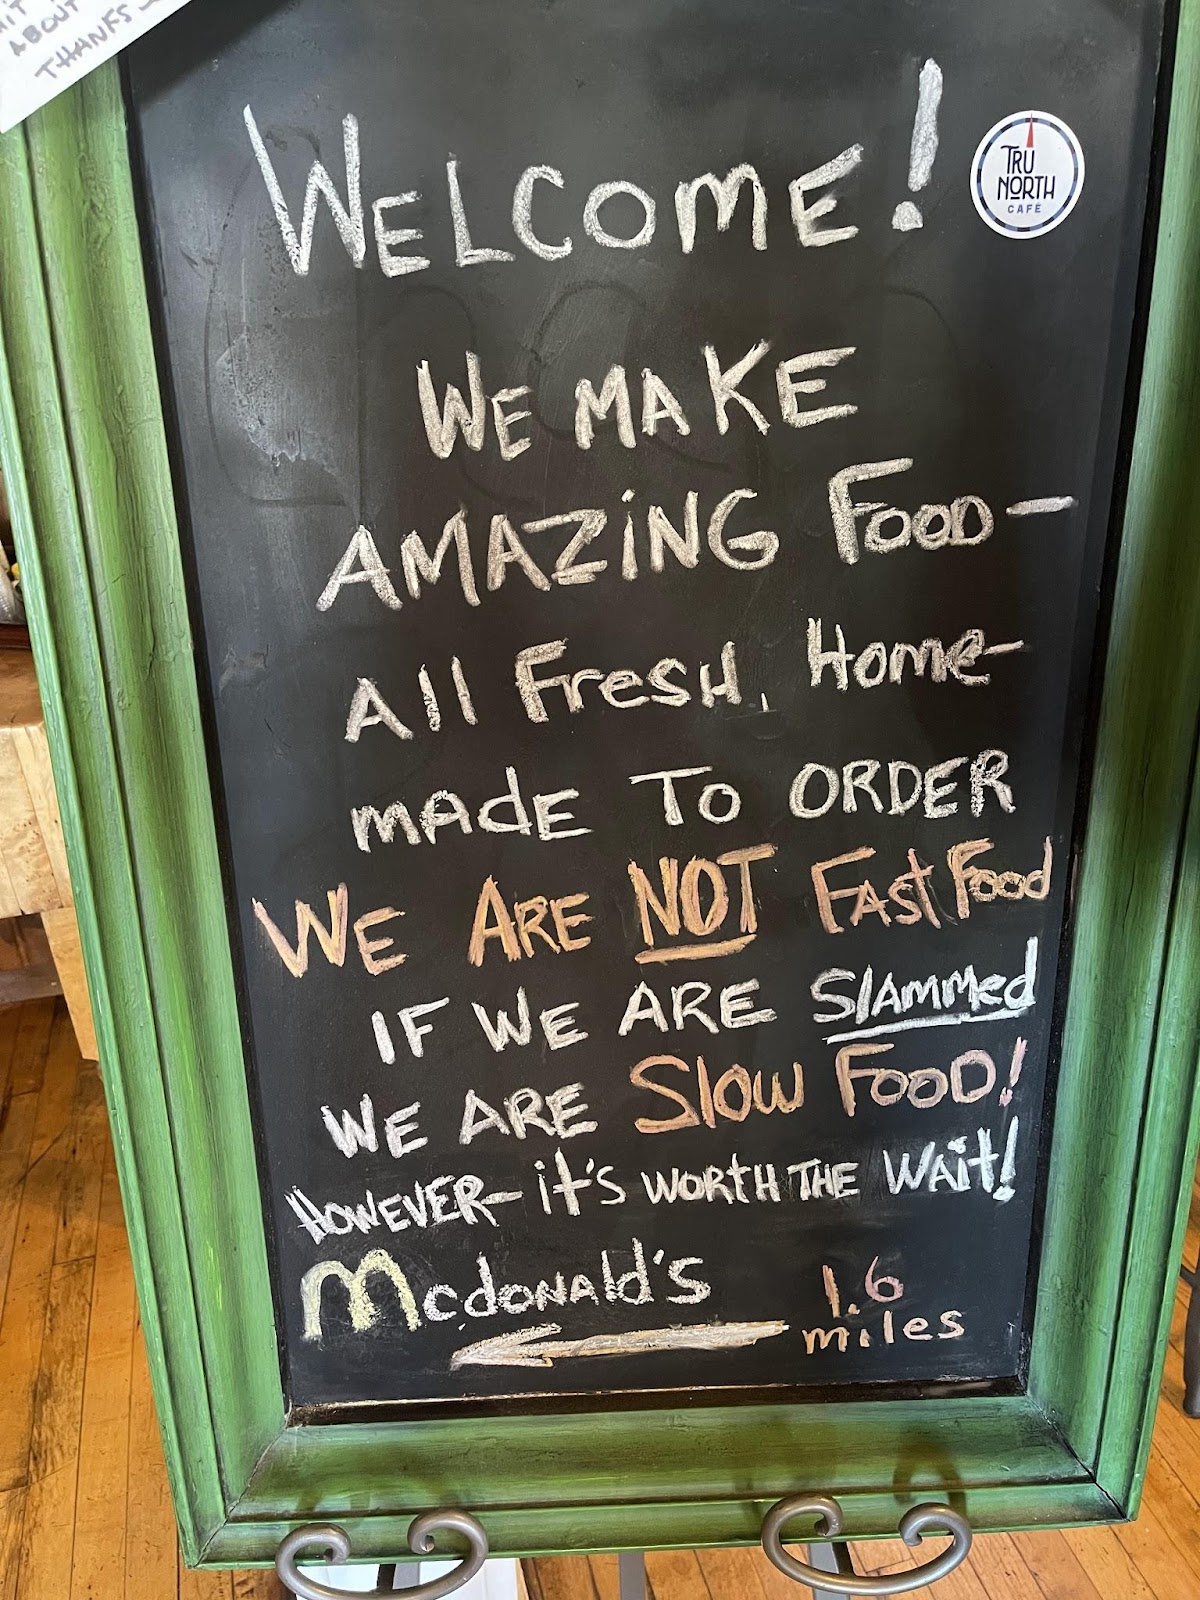 ABOUT
THANKS
WELCOME!
TRU
NORTH
CAFÉ
WE MAKE
AMAZING FOOD-
All FresH, Home-
made TO ORDER
WE ARE NOT FAST Food
IF WE ARE SlAMMed
WE ARE Slow FooD!
HOWEVER- it's WORTH THE WAit!
Mcdonald's 1.6
miles